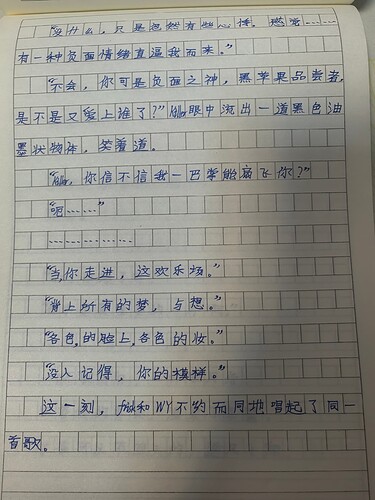 “没什么，只是忽然有些心悸。感觉……
有一种负面情绪直逼我而来。”
“不会，你可是负面之神，黑苹果品尝者，
是不是又爱上谁了？”眼中流出一道黑色油
墨状物体，笑着道。
“你信不信我一巴掌能扇飞你？”
“呃……”
……………
“当你走进，这欢乐场。”
“背上所有的梦，与想。”
“各色，的脸上，各色的妆。”
“没人记得，你的模样。”
这一刻，和WY不约而同地唱起了同一
首歌。